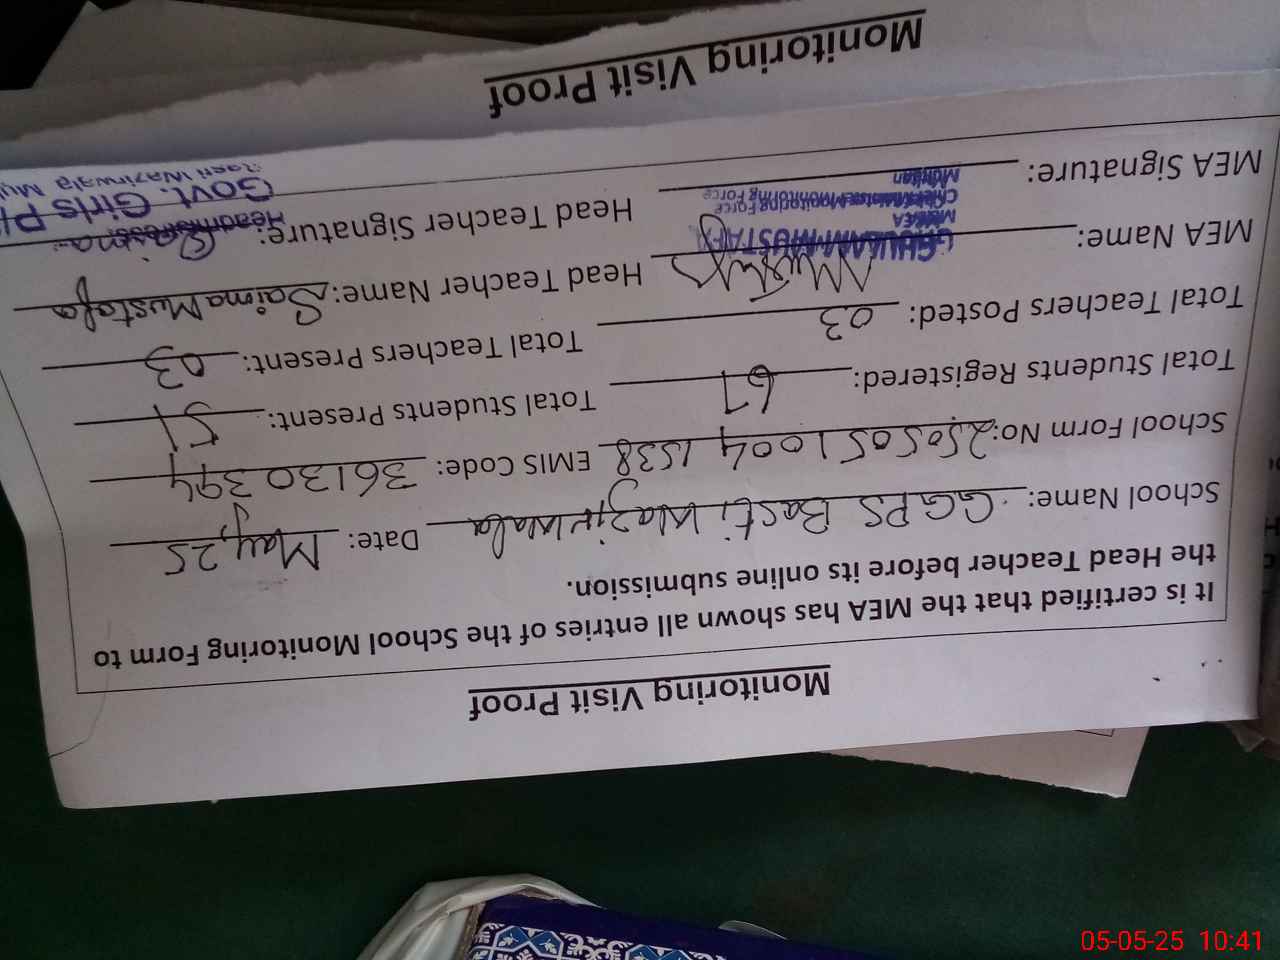 Monitoring Visit Proof
It is certified that the MEA has shown all entries of the School Monitoring Form to
the Head Teacher before its online submission.
School Name: GGPS Basti Wazir Wala Date: May, 25
School Form No: 250505 1004 1538 EMIS Code: 36130394
Total Students Registered: 67 Total Students Present: 51
Total Teachers Posted: 03 Total Teachers Present: 03
MEA Name: Head Teacher Name: Saima Mustafa
MEA Signature: Head Teacher Signature: Saima
GHULAM MUSTAFA
MEA
Monitoring Force
Govt. Girls P
Wazirwala Mu
Monitoring Visit Proof
05-05-25 10:41